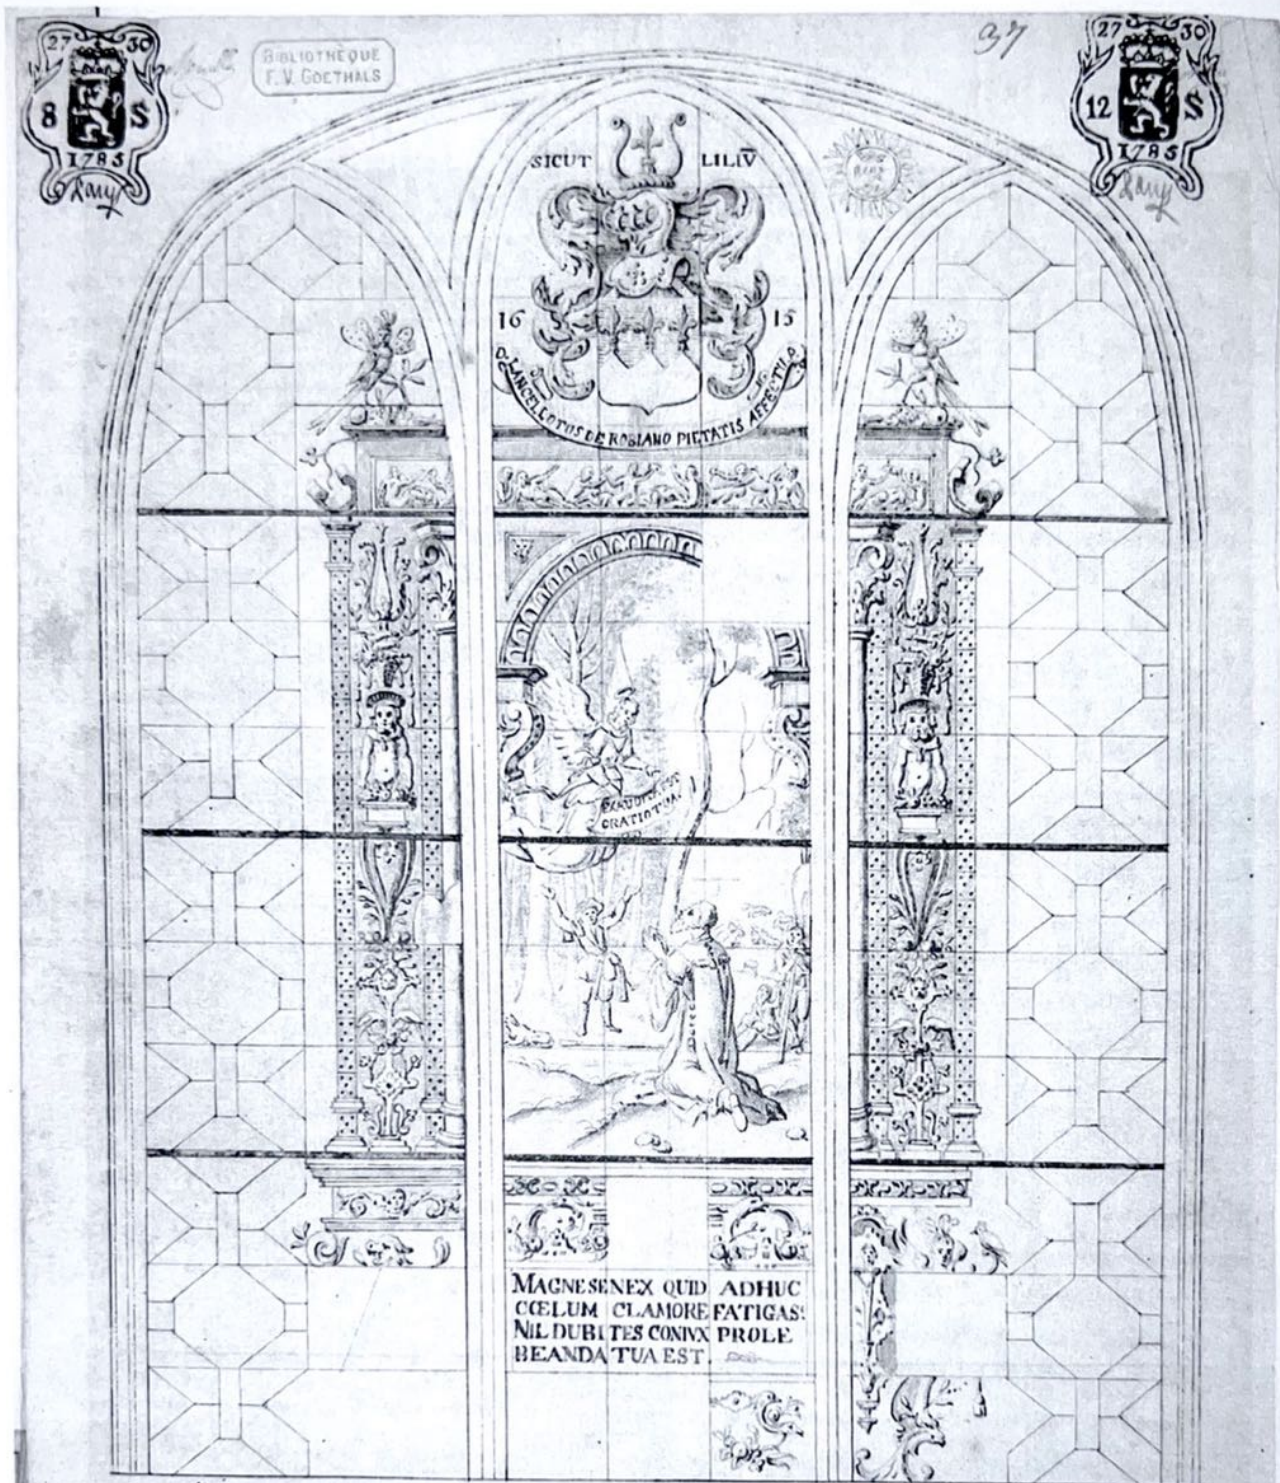 27 30
8 S
1785
BIBLIOTHÈQUE
F. V. GOETHALS
37
27 30
12 S
1785
SICUT LILIV̄
16 15
D. LANCELLOTUS DE ROBIANO PIETATIS AFFECTU P.
EXAUDITA EST
ORATIO TUA
MAGNE SENEX QUID ADHUC
CŒLUM CLAMORE FATIGAS:
NIL DUBITES CONIVX PROLE
BEANDA TUA EST.